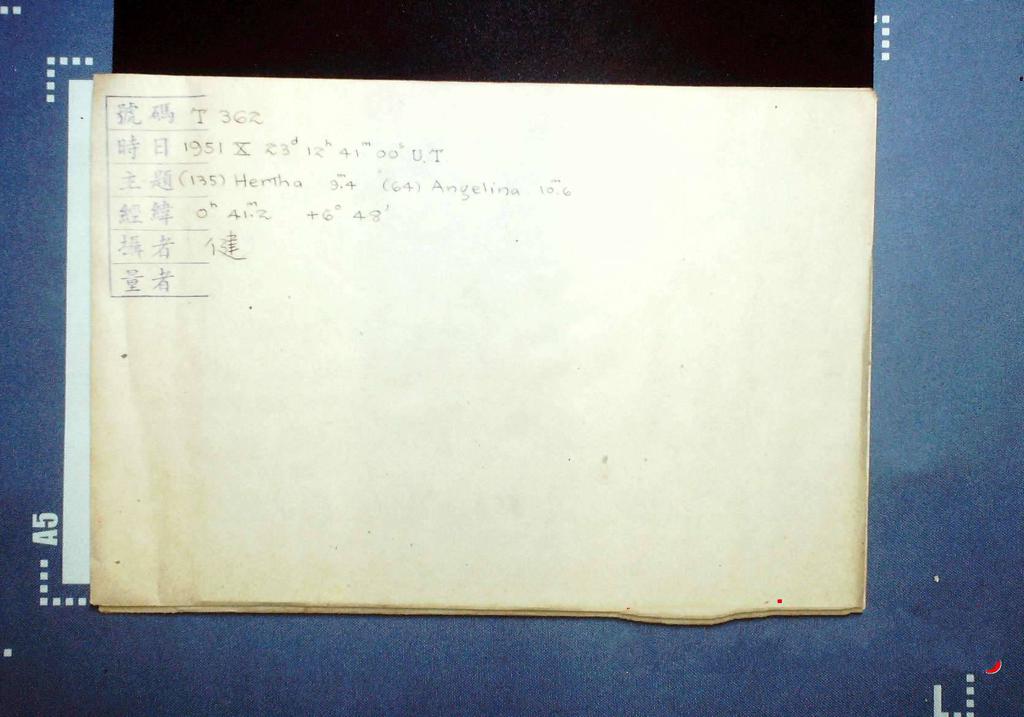 號碼 T 362
時日 1951 X 23ᵈ 12ʰ 41ᵐ 00ˢ U.T
主題 (135) Hertha 9ᵐ.4 (64) Angelina 10ᵐ.6
經緯 0ʰ 41ᵐ.2 +6° 48'
攝者 健
量者
A5